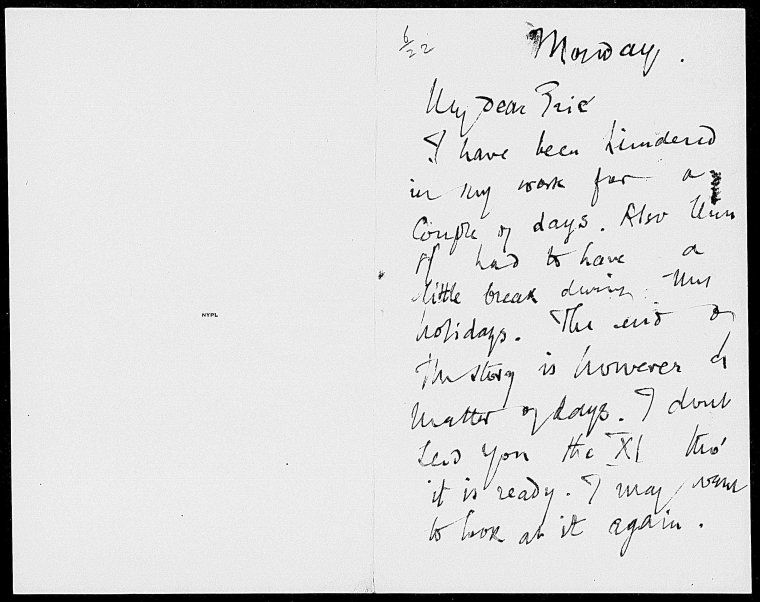 6/22
Monday.
My dear Eric
I have been hindered
in my work for a
couple of days. Also
I had to have a
little break during the
holidays. The end of
the story is however a
matter of days. I dont
send you the XI tho'
it is ready. I may want
to look at it again.
NYPL